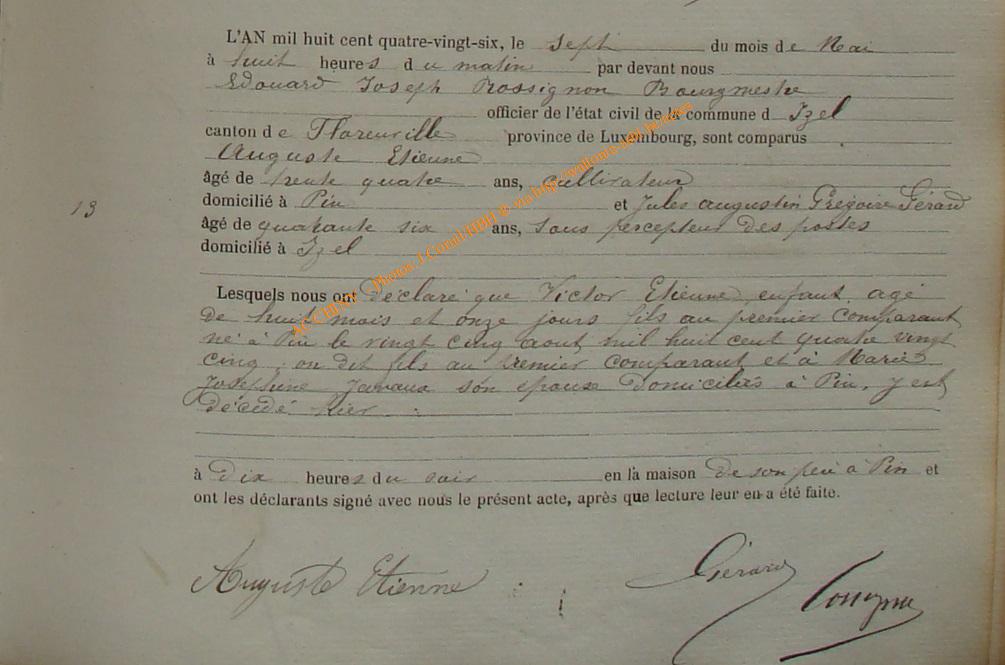 L'AN mil huit cent quatre-vingt-six, le sept du mois de Mai
à huit heures du matin par devant nous
Edouard Joseph Rossignon Bourgmestre
officier de l'état civil de la commune d Izel
canton de Florenville province de Luxembourg, sont comparus
Auguste Etienne
âgé de trente quatre ans, cultivateur
13
domicilié à Pin et Jules Augustin Grégoire Gérard
âgé de quarante six ans, sous percepteur des postes
domicilié à Izel
Lesquels nous ont déclaré que Victor Etienne, enfant, agé
de huit mois et onze jours fils au premier comparant
né à Pin le vingt cinq aout mil huit cent quatre vingt
cinq, on dit fils au premier comparant et à Marie
Josephine Javaux son epouse domiciliés à Pin, y est
décédé hier
à dix heures du soir en la maison de son père à Pin et
ont les déclarants signé avec nous le présent acte, après que lecture leur en a été faite.
Auguste Etienne Gérard
ACCHIST Photos J.Comil/HBH © via http://wallonia-asbl.be/